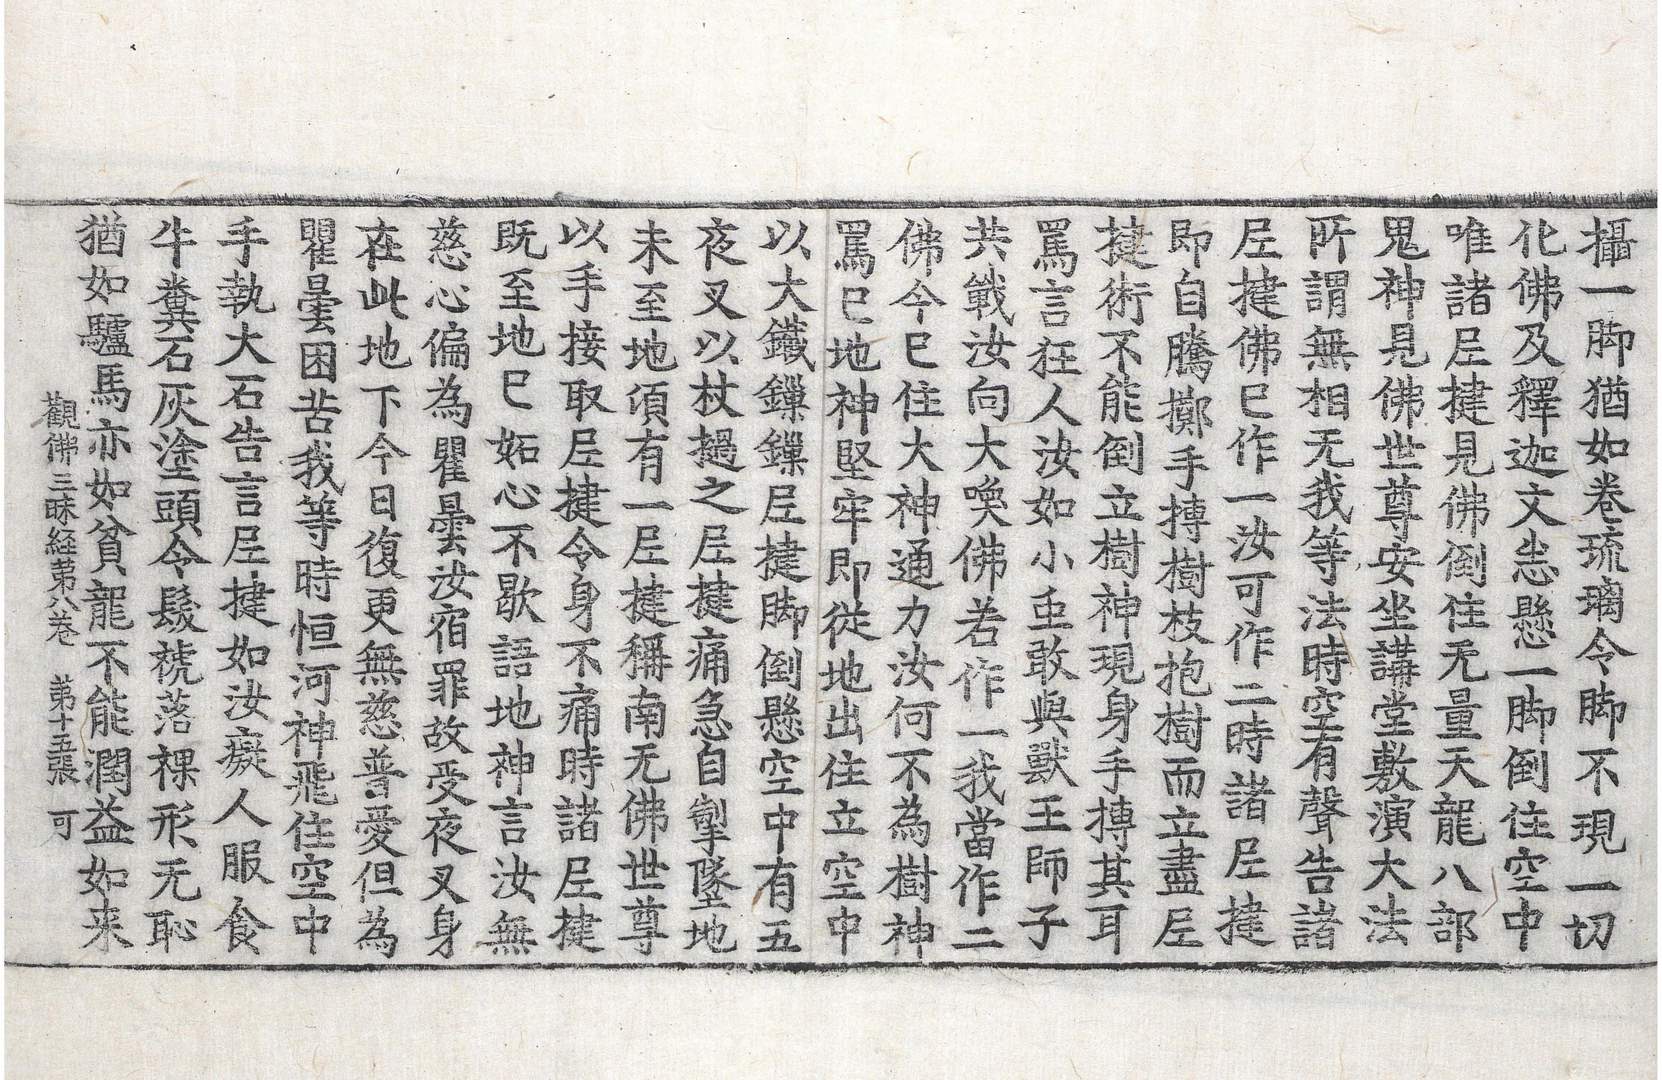 攝一脚猶如卷琉璃令脚不現一切
化佛及釋迦文悉懸一脚倒住空中
唯諸尼揵見佛倒住无量天龍八部
鬼神見佛世尊安坐講堂敷演大法
所謂無相无我等法時空有聲告諸
尼揵佛已作一汝可作二時諸尼揵
即自騰擲手搏樹枝抱樹而立盡尼
揵術不能倒立樹神現身手搏其耳
罵言狂人汝如小䖝敢與獸王師子
共戰汝向大喚佛若作一我當作二
佛今已住大神通力汝何不為樹神
罵已地神堅牢即從地出住立空中
以大鐵鏁鏁尼揵脚倒懸空中有五
夜叉以杖撾之尼揵痛急自掣墜地
未至地傾有一尼揵稱南无佛世尊
以手接取尼揵令身不痛時諸尼揵
既至地已妬心不歇語地神言汝無
慈心偏為瞿曇汝宿罪故受夜叉身
在此地下今日復更無慈普愛但為
瞿曇困苦我等時恒河神飛住空中
手執大石告言尼揵如汝癡人服食
牛糞石灰塗頭令髮褫落裸形无恥
猶如驢馬亦如貧龍不能潤益如来
觀佛三昧経苐八卷　苐十五張　可